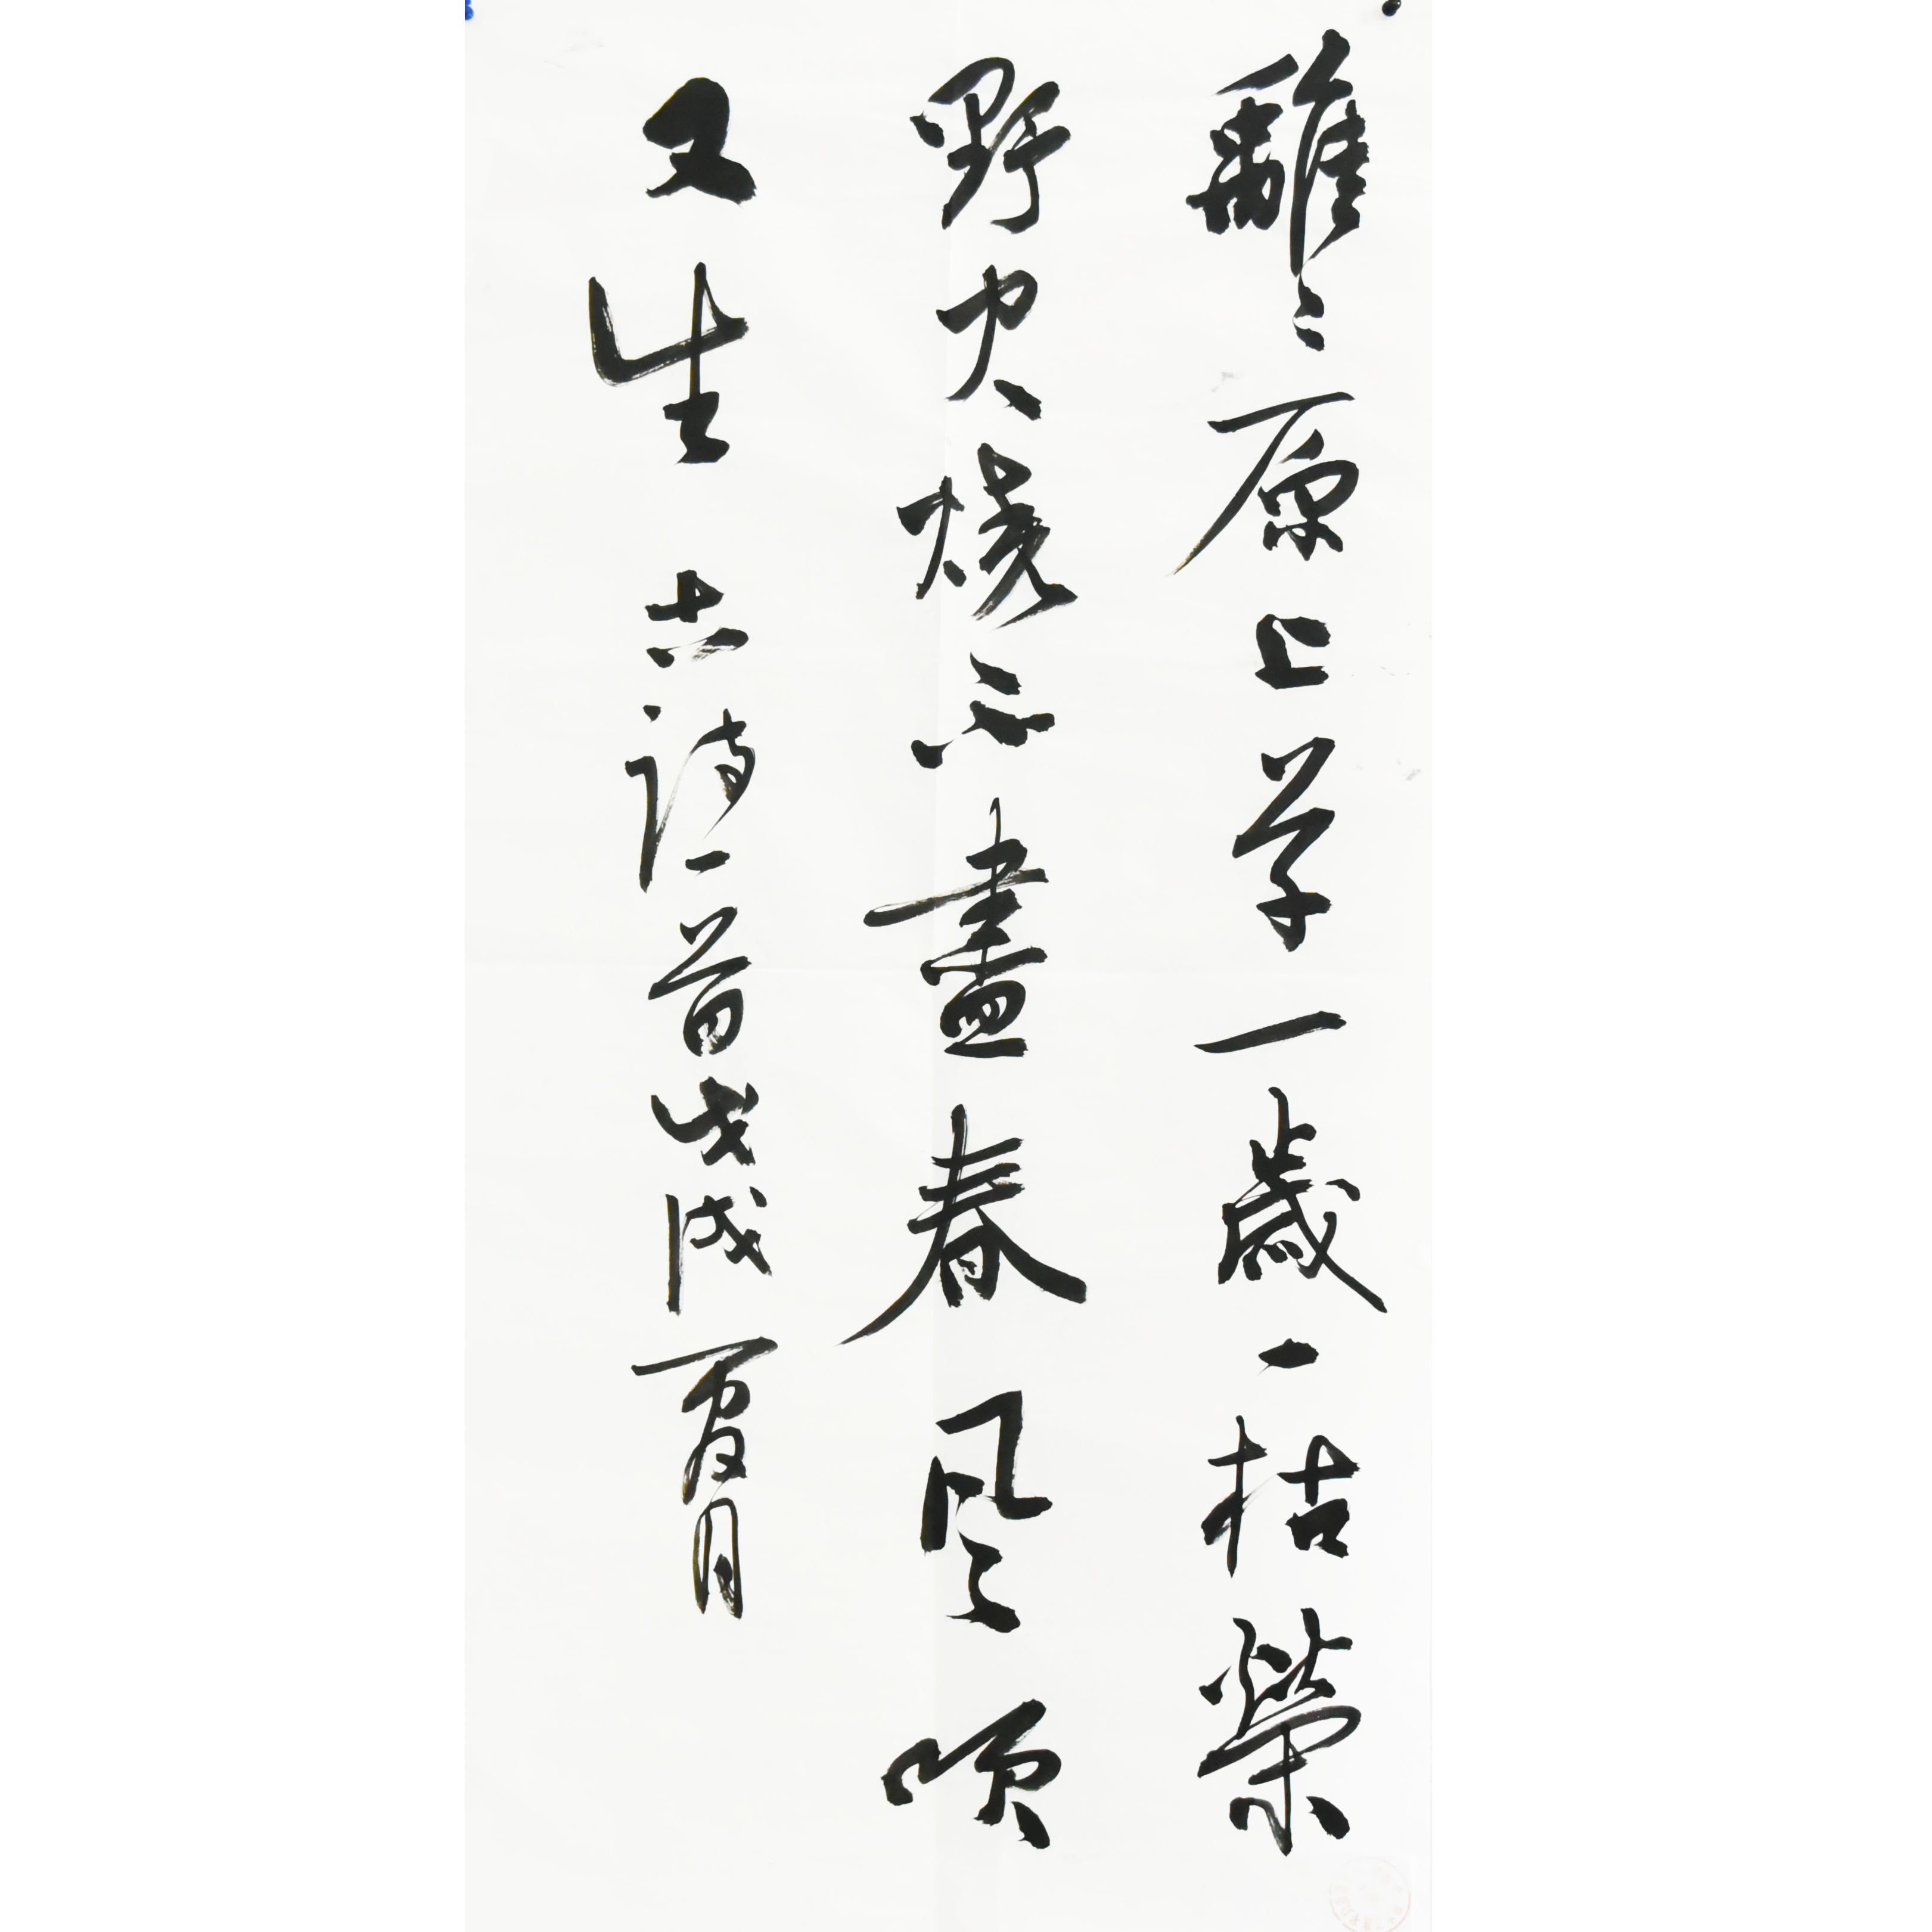 離〻原上草一歲一枯榮
野火燒不盡春風吹
又生 古詩一首戊戌夏月